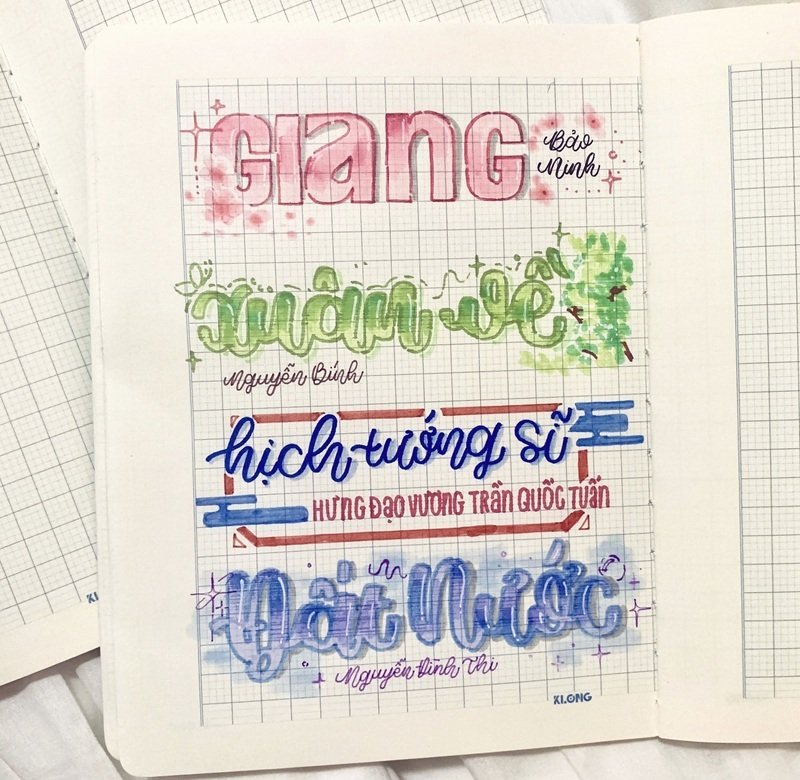 Giang
Bảo
Ninh
xuân về
Nguyễn Bính
hịch tướng sĩ
HƯNG ĐẠO VƯƠNG TRẦN QUỐC TUẤN
Đất Nước
Nguyễn Đình Thi
KLONG
KL